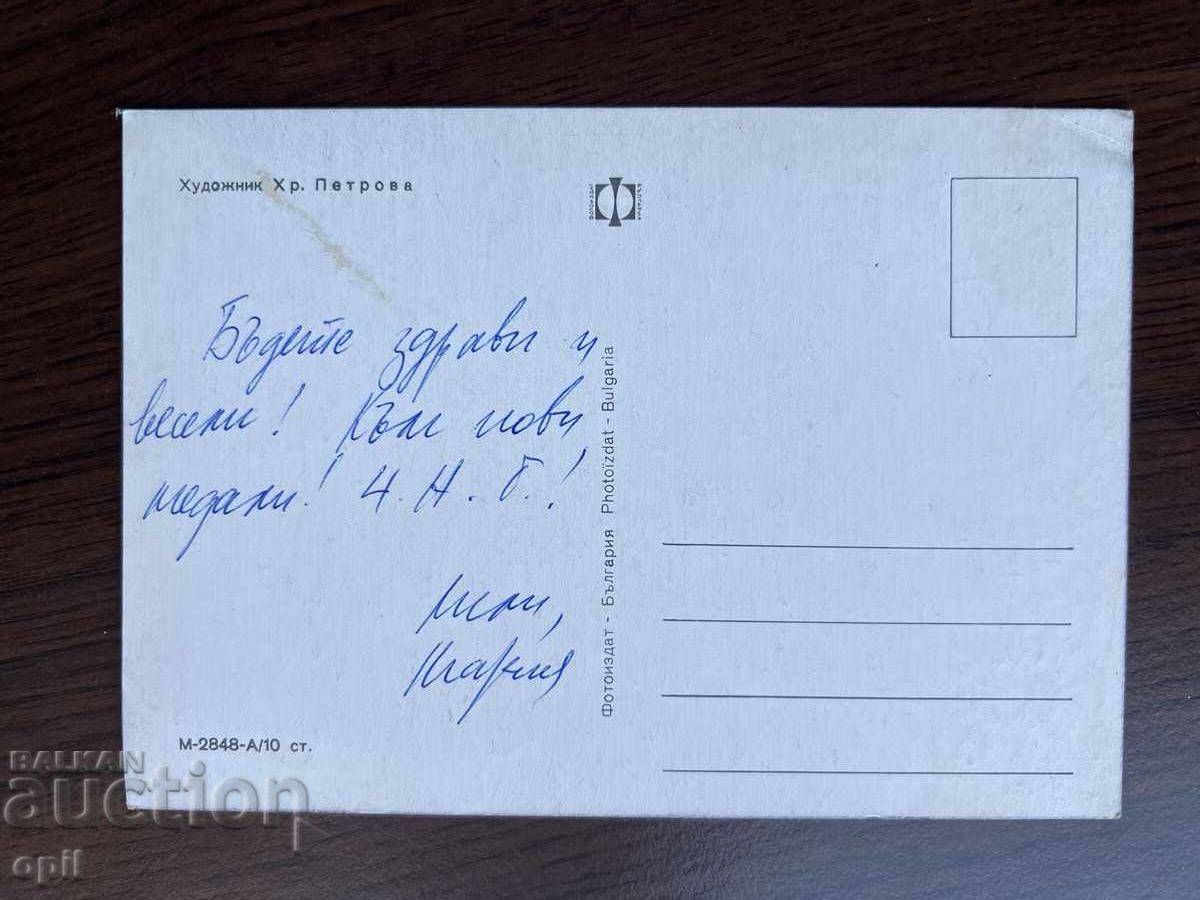 Художник Хр. Петрова
ФОТОИЗДАТ
БЪЛГАРИЯ
Бъдете здрави и
весели! Към нови
медали! Ч. Н. Г.!
Мария
М-2848-А/10 ст.
Фотоиздат - България Photoïzdat - Bulgaria
BALKAN
auction
opil